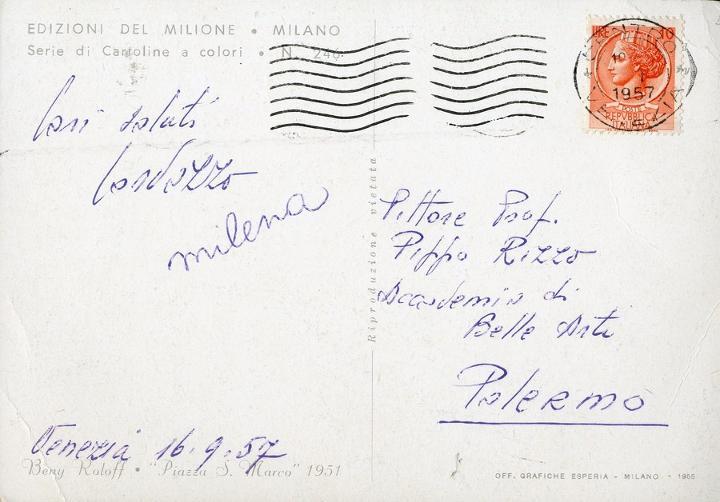 EDIZIONI DEL MILIONE • MILANO
Serie di Cartoline a colori • N. 246
Cari saluti
Cardazzo
milena
Venezia 16.9.57
Beny Koloff - "Piazza S. Marco" 1951
Riproduzione vietata
LIRE 10
POSTE
REPVBBLICA
ITALIANA
1957
Pittore Prof.
Pippo Rizzo
Accademia di
Belle Arti
Palermo
OFF. GRAFICHE ESPERIA - MILANO - 1955